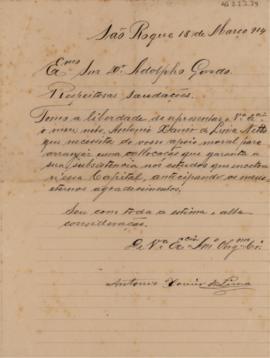 São Roque 18 de Março 914
Exmo Snr Dr. Adolpho Gordo
Respeitosas Saudações.
Tomo a liberdade de apresentar a V.a Ex.cia
o meu neto, Antonio Xavier de Lima Netto
que necessita do vosso apoio moral para
arranjar uma collocação que garanta a
sua subsistencia nos estudos que
n'essa Capital, anticipando os meus
eternos agradecimentos.
Sou com toda a estima e alta
consideração.
De V.a Ex.cia
Antonio Xavier de Lima